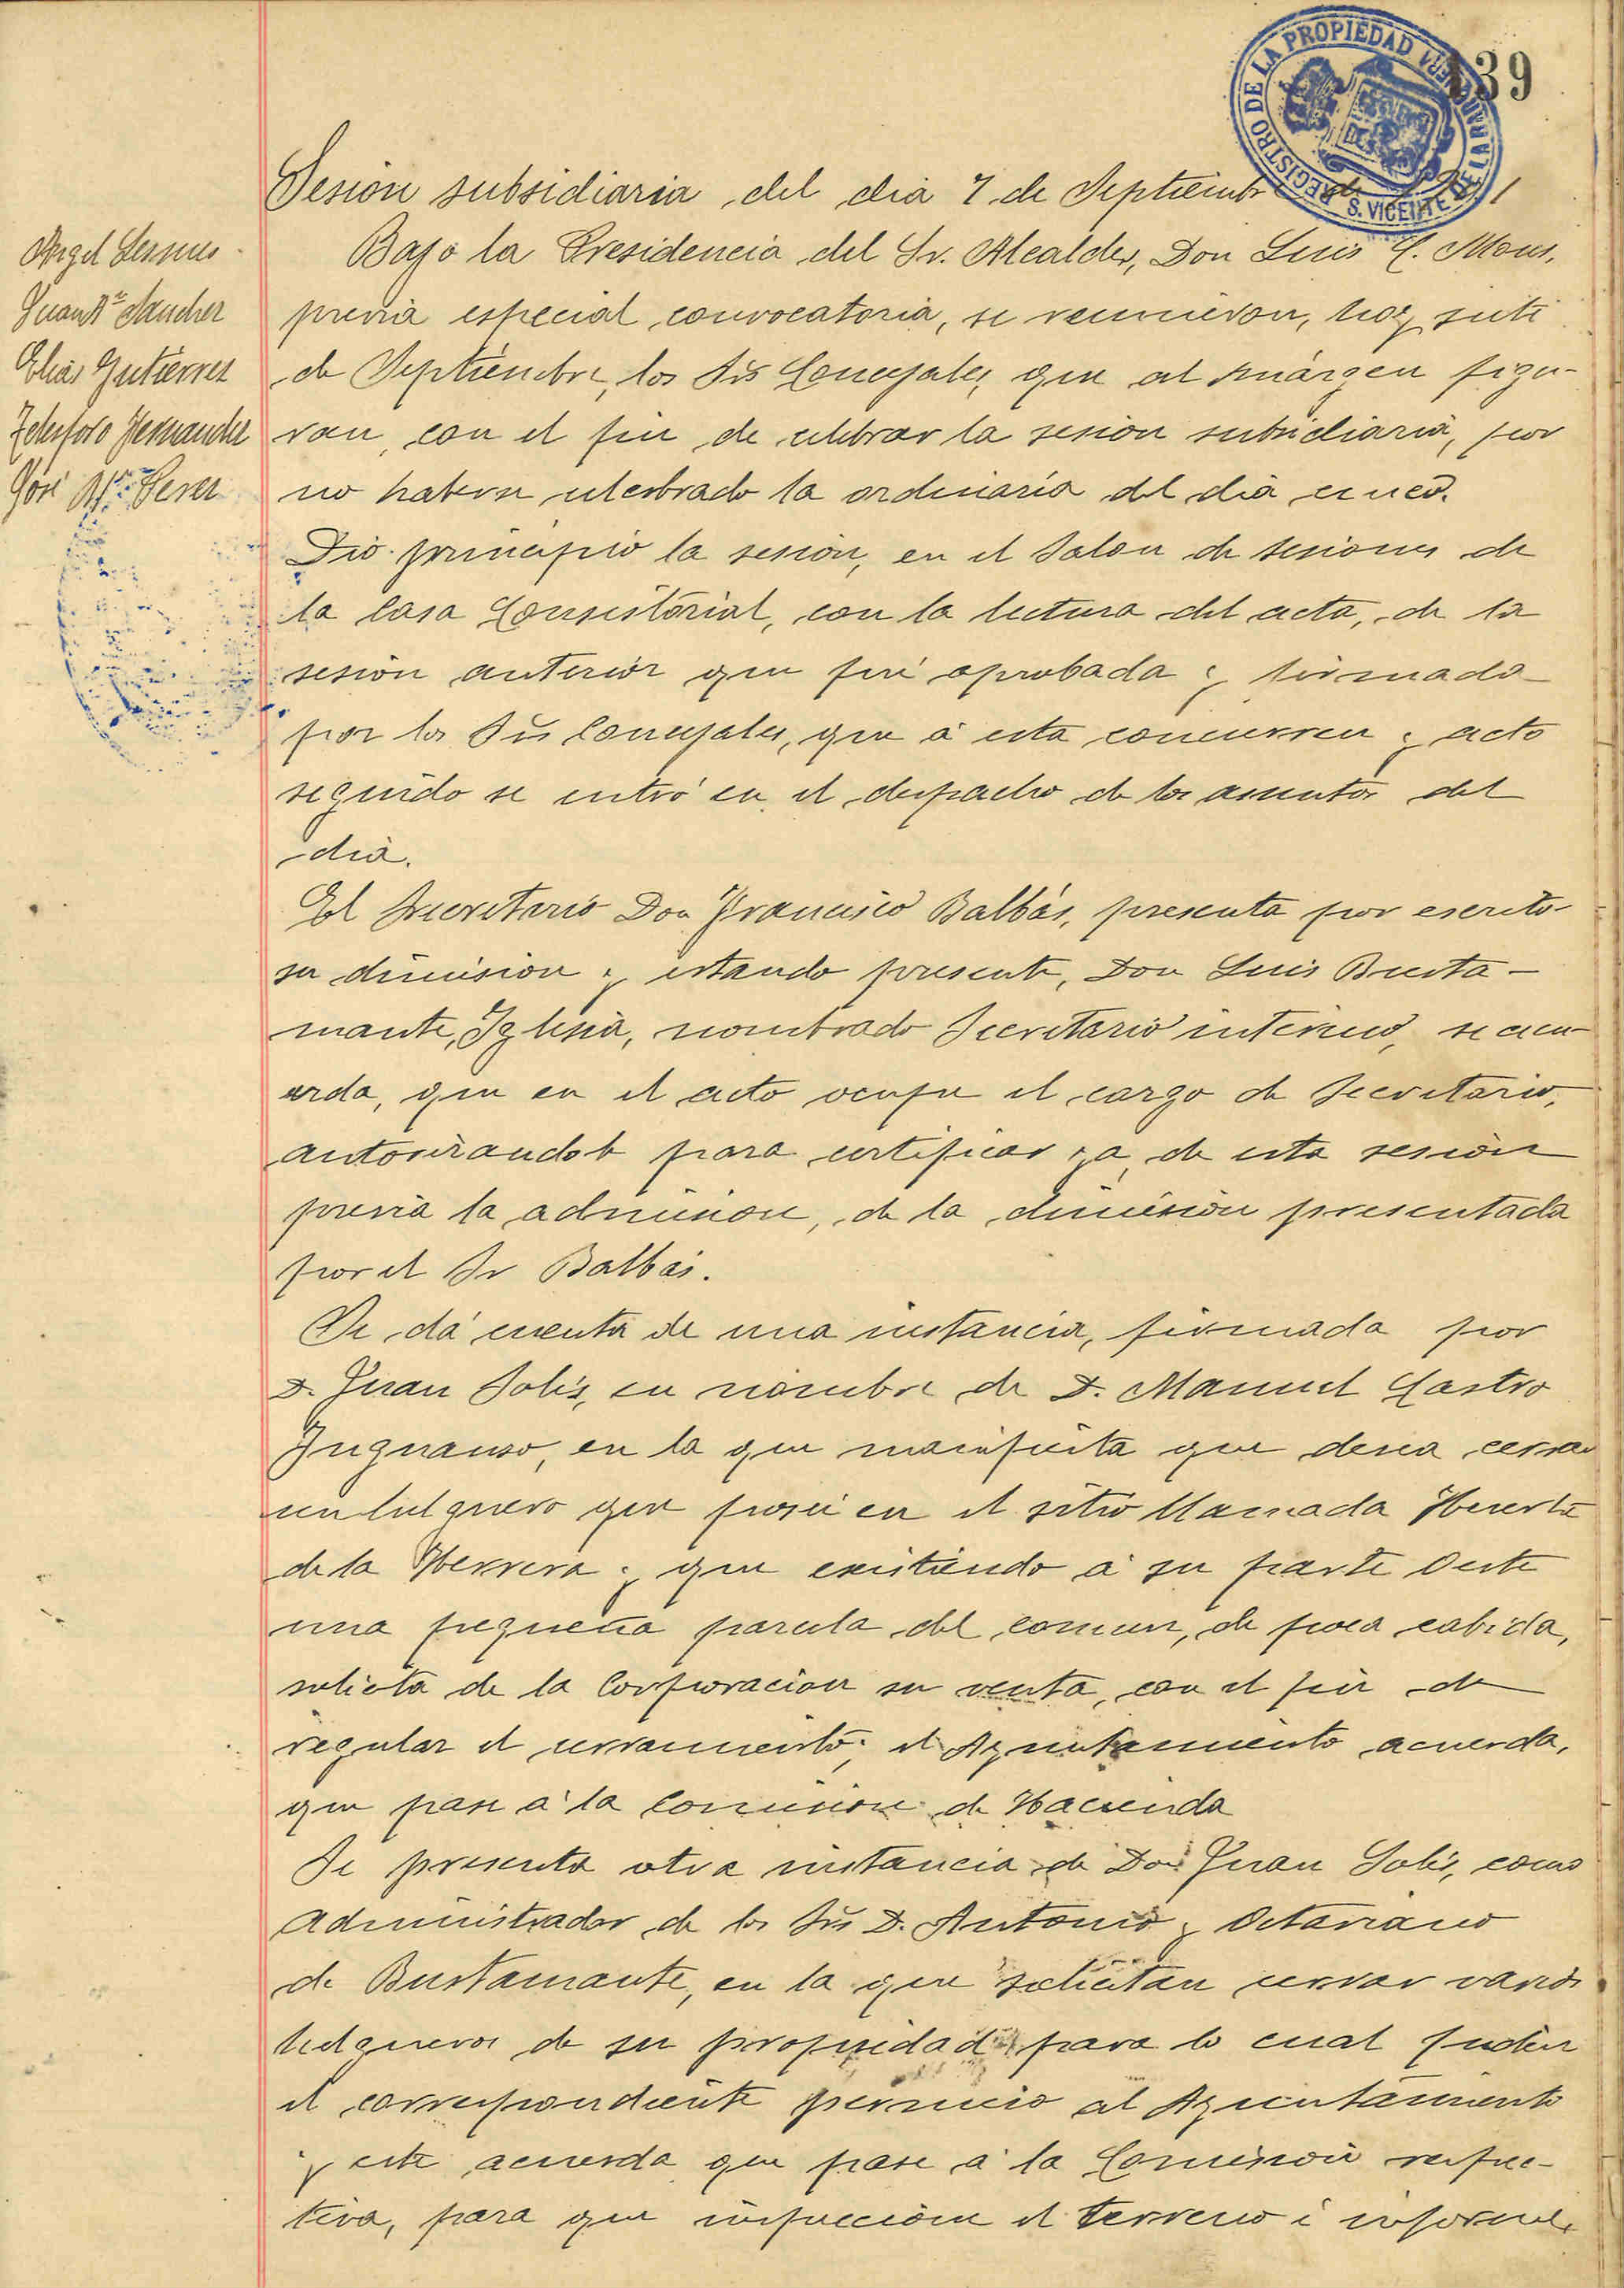 139
REGISTRO DE LA PROPIEDAD
S. VICENTE DE LA BARQUERA
Sesión subsidiaria del dia 7 de Septiembre de
Angel
Juan Aº Sanchez
Elías Gutierrez
Telesforo Fernandez
José Mª Perez
Bajo la Presidencia del Sr. Alcalde, Don Luis C. Mons,
previa especial convocatoria, se reunieron, hoy siete
de Septiembre, los Srs Concejales que al márgen figu-
ran, con el fin de celebrar la sesión subsidiaria, por
no haberse celebrado la ordinaria del dia cinco.
Dio principio la sesión, en el Salon de sesiones de
la Casa Consistorial, con la lectura del acta, de la
sesión anterior que fué aprobada y firmada
por los Srs Concejales, que á esta concurren y acto
seguido se entró en el despacho de los asuntos del
dia.
El Secretario Don Francisco Balbás, presenta por escrito
su dimision y estando presente, Don Luis Busta-
mante, Iglesia, nombrado Secretario interino, se acu-
erda, que en el acto ocupe el cargo de Secretario,
autorizandole para certificar ya de esta sesión
previa la admision, de la dimisión presentada
por el Sr Balbás.
Se dá cuenta de una instancia, firmada por
D. Juan Solis, en nombre de D. Manuel Castro
Inguanzo, en la que manifiesta que desea cerrar
un helguero que posee en el sitio llamada Huerta
de la Herrera y que existiendo á su parte Oeste
una pequeña parcela del comun, de poca cabida,
solicita de la Corporacion su venta, con el fin de
regular el cerramiento; el Ayuntamiento acuerda,
que pase á la Comision de Hacienda
Se presenta otra instancia de Don Juan Solis, como
Administrador de los Srs D. Antonio y Octaviano
de Bustamante, en la que solicitan cerrar varios
helgueros de su propiedad para lo cual piden
el correspondiente permiso al Ayuntamiento
y este acuerda que pase á la Comisión respec-
tiva, para que inspeccione el terreno é informe.